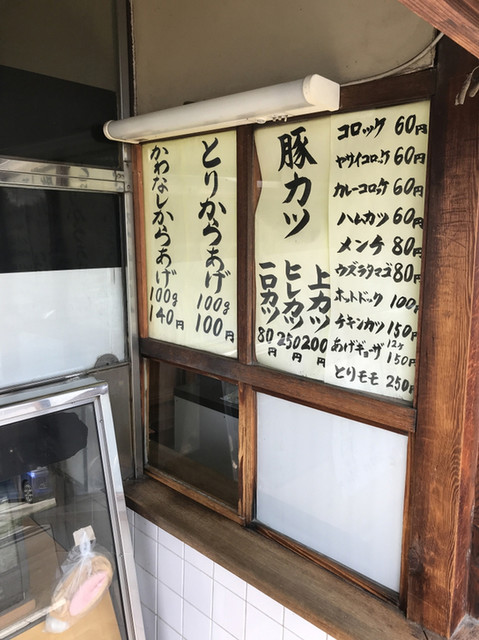 コロッケ 60円
ヤサイコロッケ 60円
カレーコロッケ 60円
ハムカツ 60円
メンチ 80円
ウズラタマゴ 80円
ホットドック 100円
チキンカツ 150円
あげギョーザ 12ケ 150円
とりモモ 250円
豚カツ
上カツ 200円
ヒレカツ 250円
一口カツ 80円
とりからあげ 100g 100円
かわなしからあげ 100g 140円